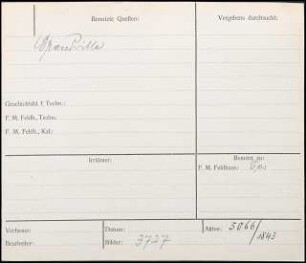 Benutzte Quellen:
Vergebens durchsucht:
Grandville
Geschichtsbl. f. Techn.:
F. M. Feldh., Techn:
F. M. Feldh., Kal.:
Irrtümer:
Benutzt zu:
F. M. Feldhaus:
Verfasser:
Datum:
Akten: 5066/1843
Bearbeiter:
Bilder: 3727